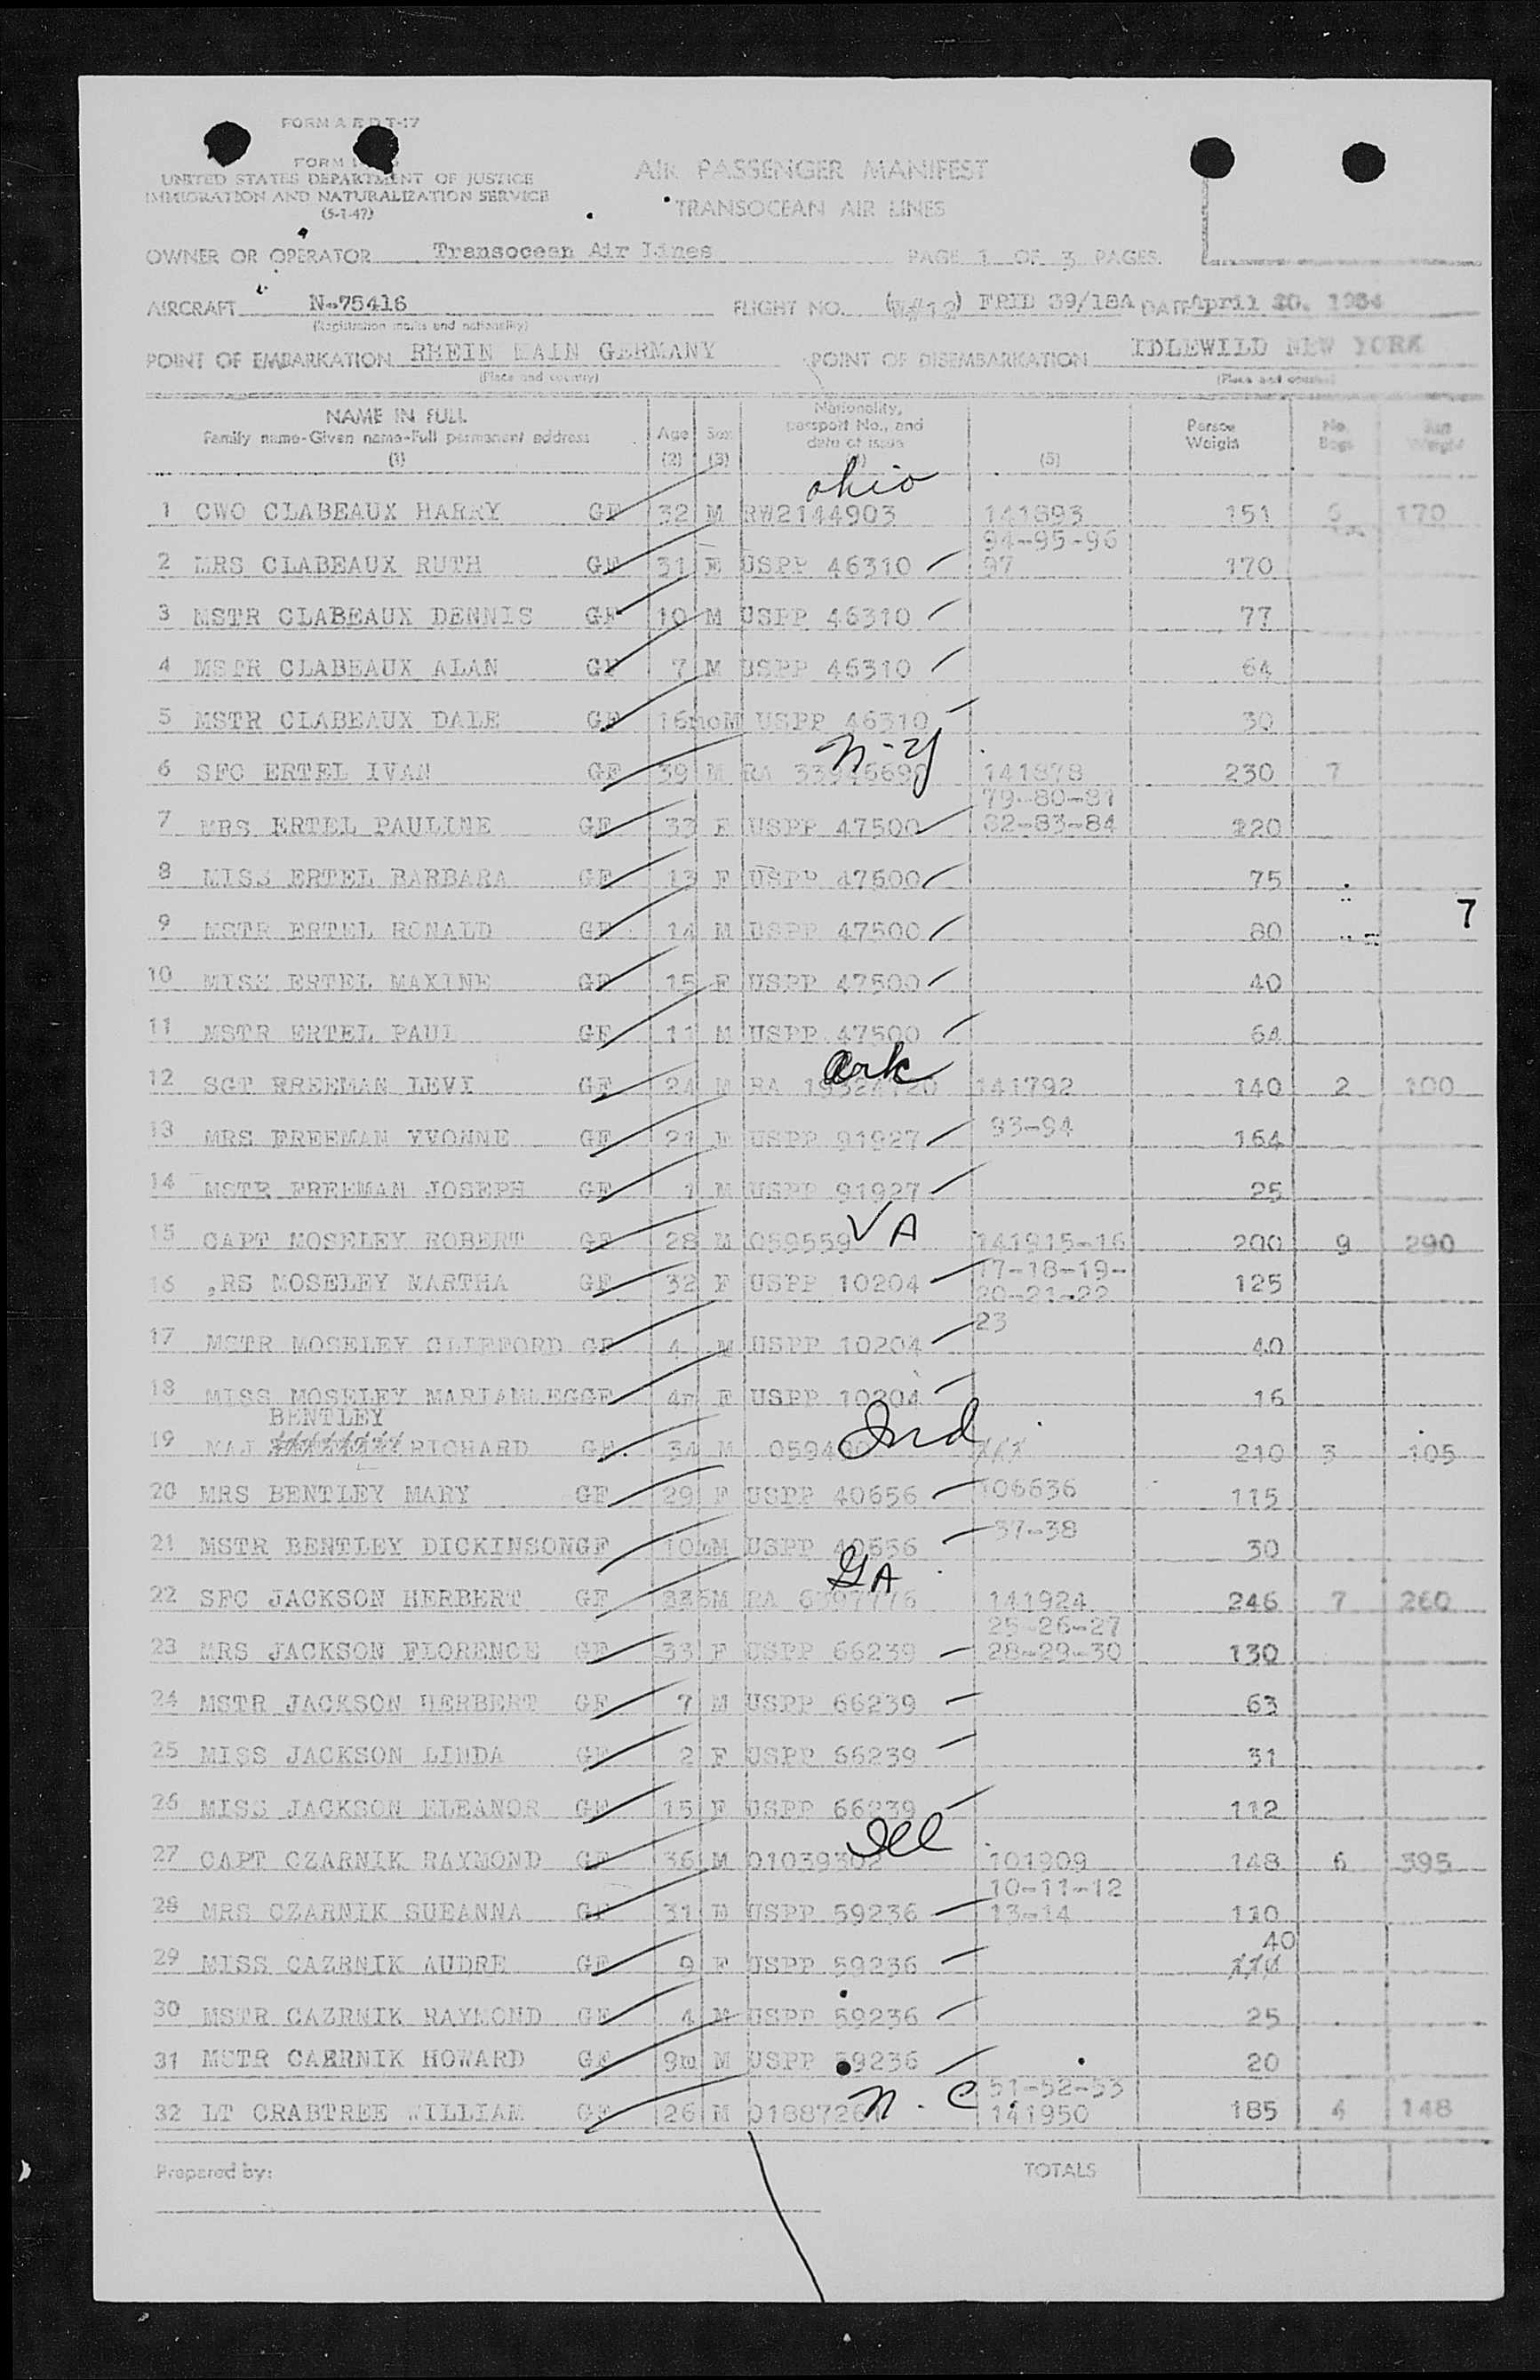 FORM A E D T-17
FORM
UNITED STATES DEPARTMENT OF JUSTICE
IMMIGRATION AND NATURALIZATION SERVICE
(5-1-47)
AIR PASSENGER MANIFEST
TRANSOCEAN AIR LINES
OWNER OR OPERATOR Transocean Air Lines PAGE 1 OF 3 PAGES
AIRCRAFT N-75416 FLIGHT NO. FRID 39/18A DATE April 1954
(Registration marks and nationality)
POINT OF EMBARKATION RHEIN MAIN GERMANY POINT OF DISEMBARKATION IDLEWILD NEW YORK
(Place and country) (Place and country)
NAME IN FULL
Family name-Given name-Full permanent address
(1)
Age
(2)
Sex
(3)
Nationality,
passport No., and
date of issue
(5)
Person
Weight
No.
Bags
Weight
ohio
1 CWO CLABEAUX HARRY GF 32 M RW2144903 141893 151 170
94-95-96
2 MRS CLABEAUX RUTH GF 31 F USPP 46310 97 170
3 MSTR CLABEAUX DENNIS GF 10 M USPP 46310 77
4 MSTR CLABEAUX ALAN GF 7 M USPP 46310 64
5 MSTR CLABEAUX DALE GF 16moM USPP 46310 30
N-Y
6 SFC ERTEL IVAN GF 39 M RA 141878 230 7
79-80-81
7 MRS ERTEL PAULINE GF 33 F USPP 47500 82-83-84 120
8 MISS ERTEL BARBARA GF 13 F USPP 47500 75
9 MSTR ERTEL RONALD GF 14 M USPP 47500 80
7
10 MISS ERTEL MAXINE GF 15 F USPP 47500 40
11 MSTR ERTEL PAUL GF 11 M USPP 47500 64
Ark
12 SGT FREEMAN LEVI GF 24 M RA 141792 140 2 100
13 MRS FREEMAN YVONNE GF 21 F USPP 91927 93-94 164
14 MSTR FREEMAN JOSEPH GF 1 M USPP 91927 25
VA
15 CAPT MOSELEY ROBERT GF 28 M 059559 141915-16 200 9 290
17-18-19-
16 ,RS MOSELEY MARTHA GF 32 F USPP 10204 20-21-22 125
23
17 MSTR MOSELEY CLIFFORD GF 4 M USPP 10204 40
18 MISS MOSELEY MARIAMLEGGF 4m F USPP 10204 16
BENTLEY
Ind
19 MAJ RICHARD GF 34 M 210 3 105
20 MRS BENTLEY MARY GF 29 F USPP 40656 106636 115
21 MSTR BENTLEY DICKINSONGF 10mM USPP 40656 37-38 30
GA
22 SFC JACKSON HERBERT GF RA 141924 246 7 260
25-26-27
23 MRS JACKSON FLORENCE GF 33 F USPP 66239 28-29-30 130
24 MSTR JACKSON HERBERT GF 7 M USPP 66239 63
25 MISS JACKSON LINDA GF 2 F USPP 66239 31
26 MISS JACKSON ELEANOR GF 15 F USPP 66239 112
Ill
27 CAPT CZARNIK RAYMOND GF 36 M 01039302 101909 148 6 395
10-11-12
28 MRS CZARNIK SUEANNA GF 31 F USPP 59236 13-14 110
40
29 MISS CAZRNIK AUDRE GF 9 F USPP 59236
30 MSTR CAZRNIK RAYMOND GF 4 M USPP 59236 25
31 MSTR CAZRNIK HOWARD GF 9m M USPP 59236 20
N.C. 51-52-53
32 LT CRABTREE WILLIAM GF 26 M 141950 185 4 148
Prepared by: TOTALS